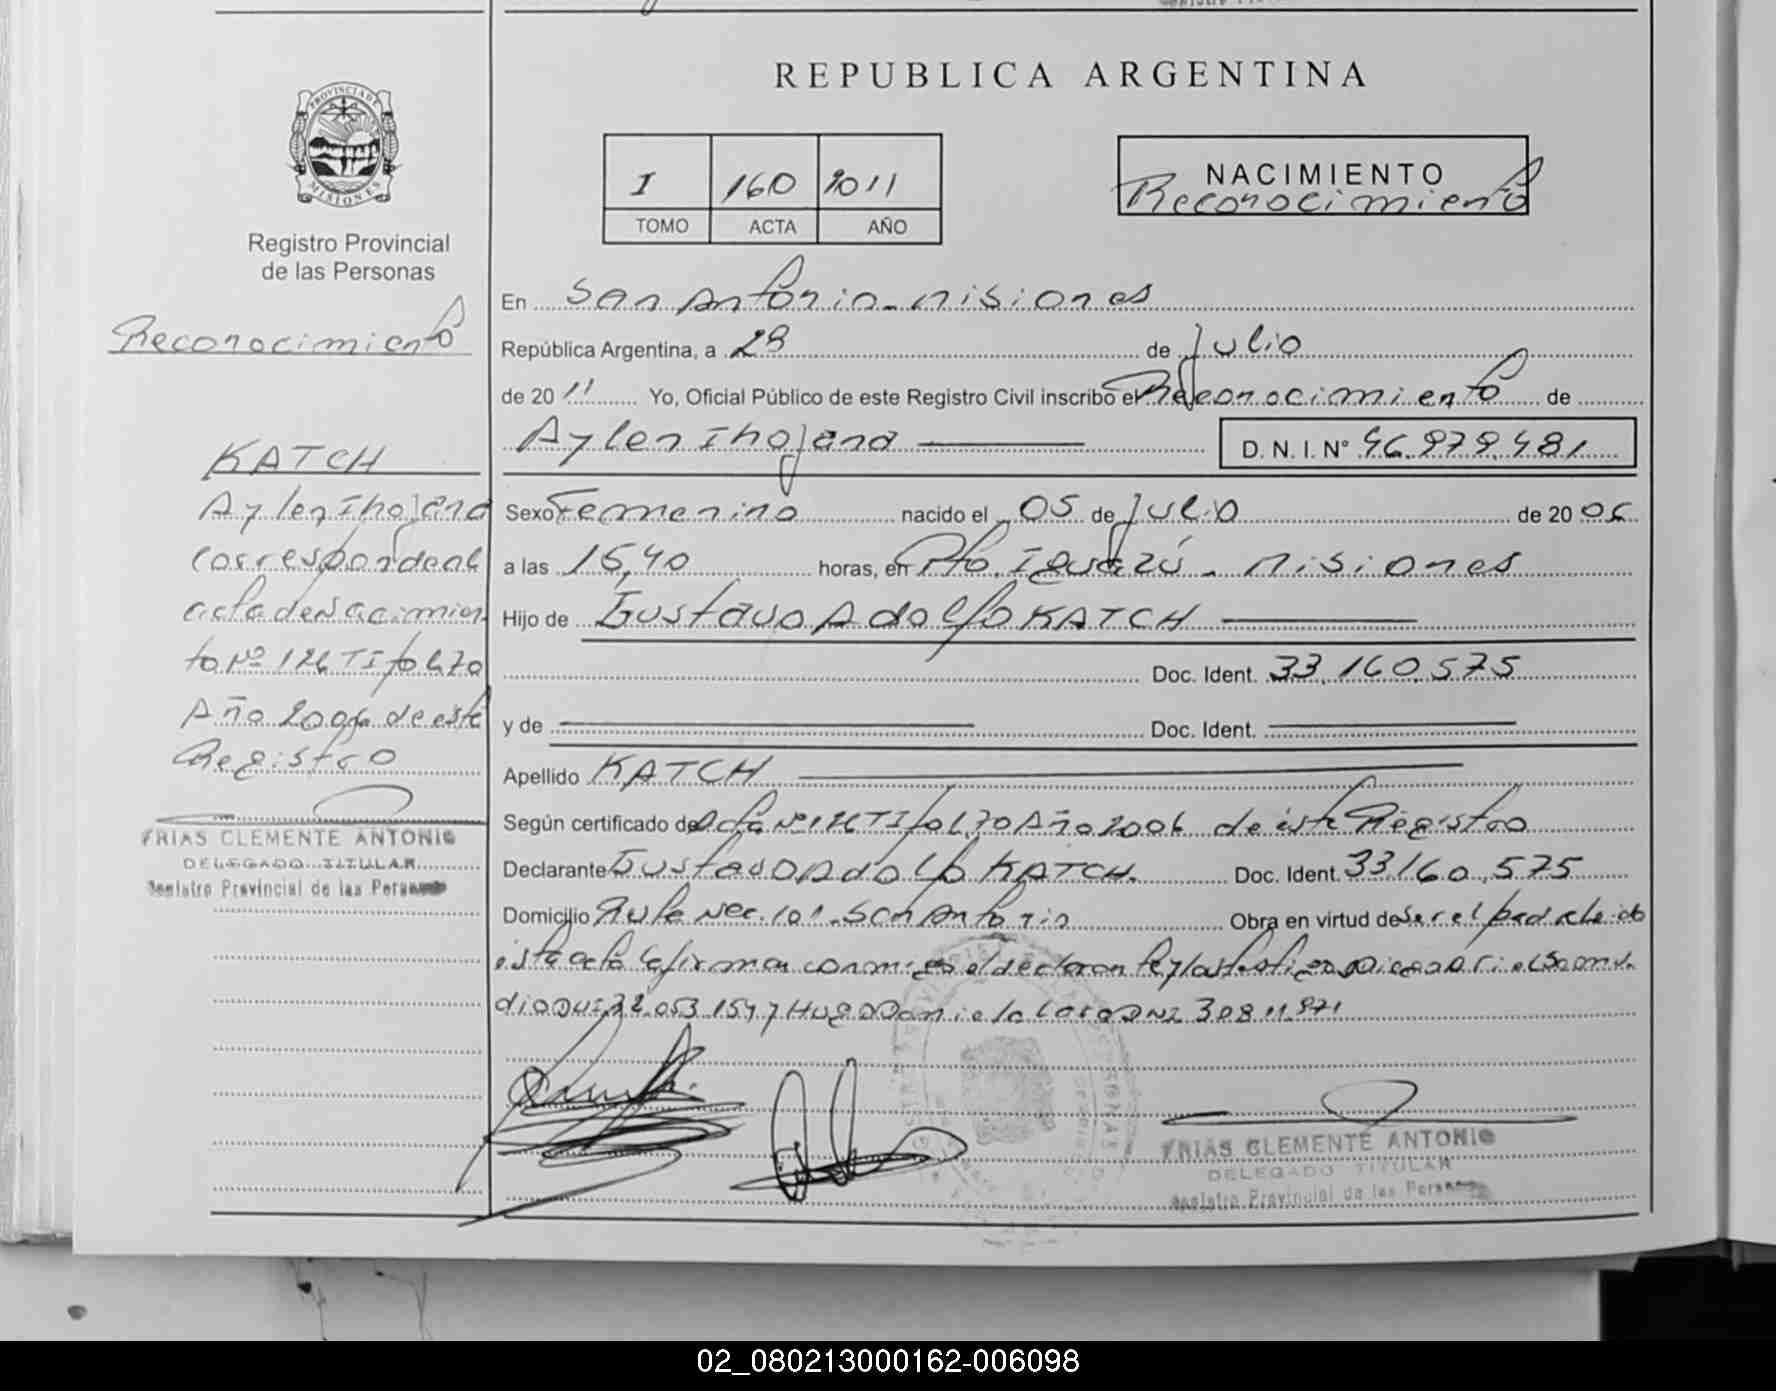 REPUBLICA ARGENTINA
PROVINCIA DE
MISIONES
Registro Provincial
de las Personas
I 160 2011
TOMO ACTA AÑO
NACIMIENTO
Reconocimiento
Reconocimiento
KATCH
Aylen Thojana
correspondeal
acta de Nacimien
to Nº 126 TI folº 70
Año 2006 de este
Registro
FRIAS CLEMENTE ANTONIO
DELEGADO TITULAR
Registro Provincial de las Personas
En San Antonio - Misiones
República Argentina, a 28 de Julio
de 2011 Yo, Oficial Público de este Registro Civil inscribo el Reconocimiento de
Aylen Thojana D. N. I. N° 46.979.481
Sexo Femenino nacido el 05 de Julio de 20 06
a las 15,40 horas, en Pto. Iguazú - Misiones
Hijo de Gustavo Adolfo KATCH
Doc. Ident. 33.160.575
y de Doc. Ident.
Apellido KATCH
Según certificado de Acta Nº 126 TI fol 70 Año 2006 de este Registro
Declarante Gustavo Adolfo KATCH. Doc. Ident. 33.160.575
Domicilio Ruta Nac. 101 - San Antonio Obra en virtud de ser el padre leido
esta acta la firman conmigo el declarante y los testigos
DNI 32.053.154 y Hugo Daniel DNI 308.11.971
FRIAS CLEMENTE ANTONIO
DELEGADO TITULAR
Registro Provincial de las Personas
02_080213000162-006098